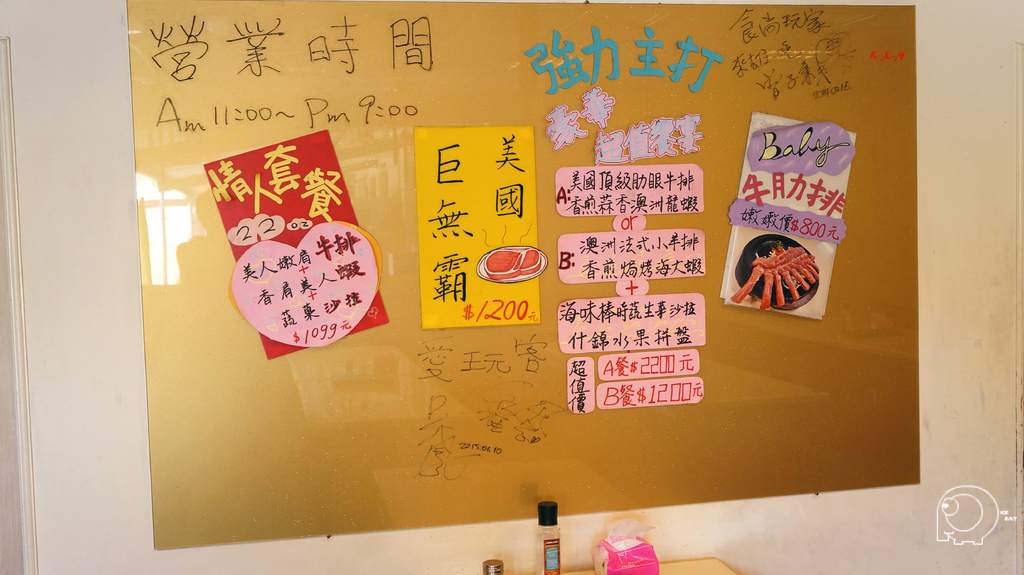 營業時間
Am 11:00~ Pm 9:00
情人套餐
美人嫩肩牛排
+
香肩美人蝦
+
蔬菓沙拉
$1099元
美國
巨無霸
$1200元
強力主打
豪華
超值饗宴
A:美國頂級肋眼牛排
香煎蒜香澳洲龍蝦
or
B:澳洲法式小羊排
香煎焗烤海大蝦
+
海味棒時蔬生菜沙拉
什錦水果拼盤
超值價
A餐$2200元
B餐$1200元
食尚玩家
Baby
牛肋排
嫩嫩價$800元
愛玩客
2015.06.10